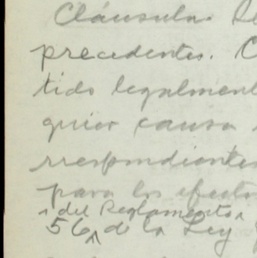 Cláusula.
precedentes. C
tido legalment
quier causa
rrespondientes
para los efecto
del Reglamento
56 de la Ley